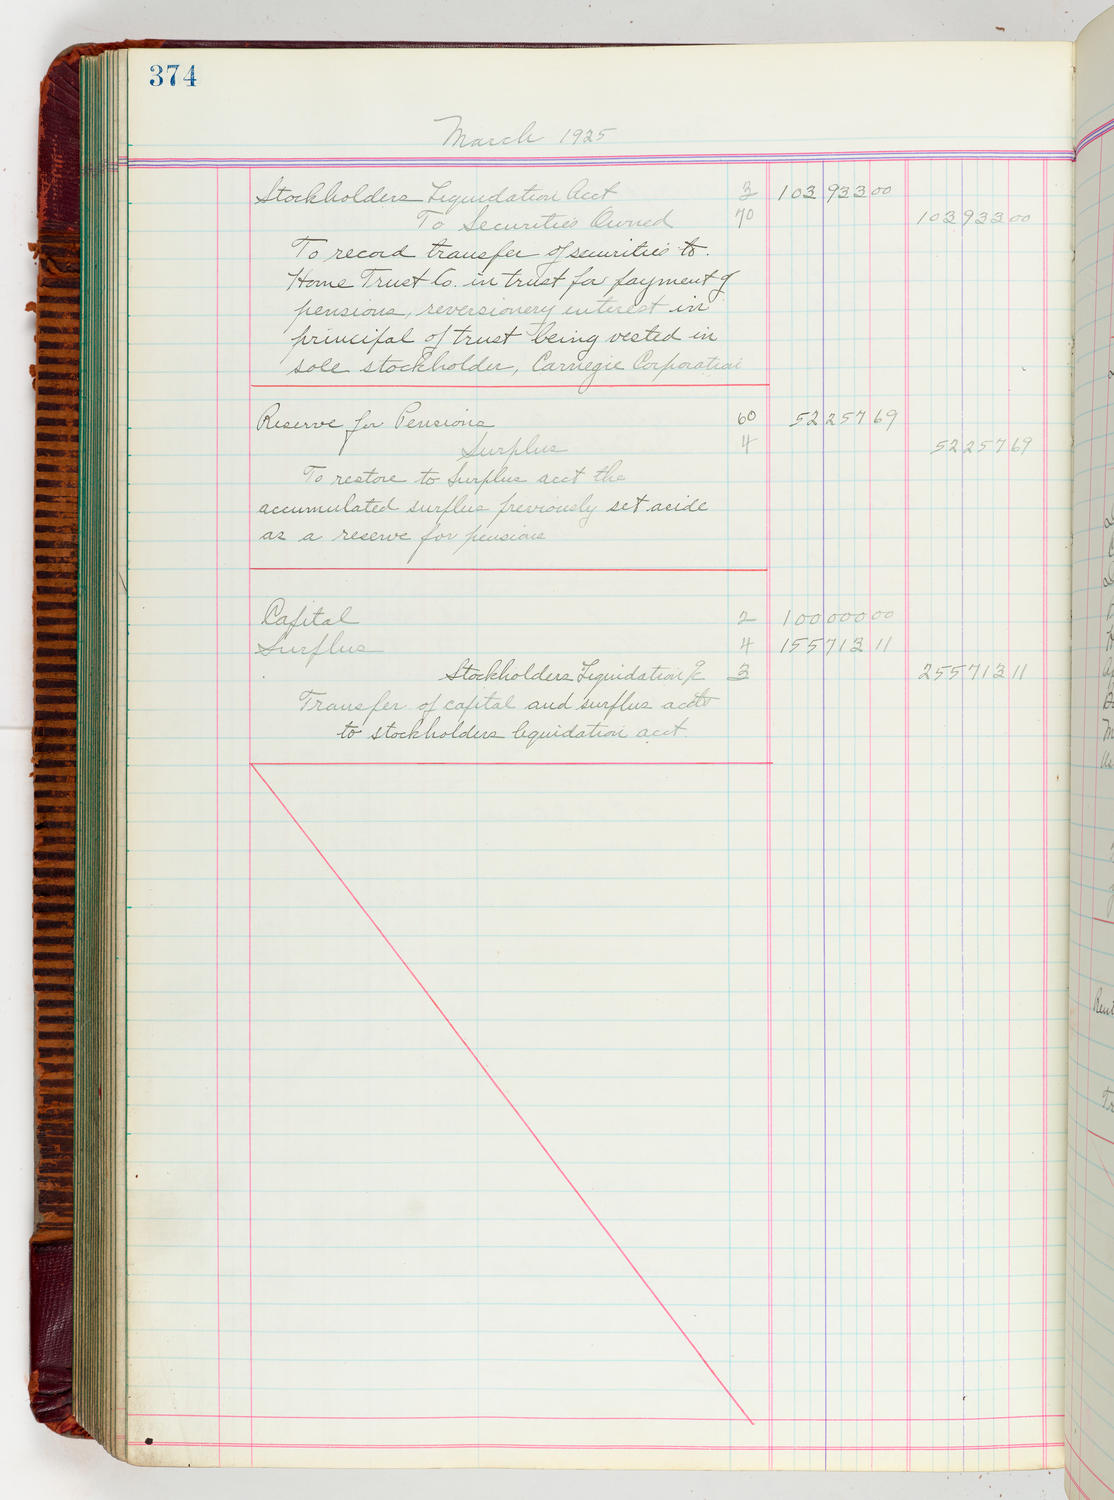 374
March 1925
Stockholders Liquidation Acct 3 103 933 00
To Securities Owned 70 103 933 00
To record transfer of securities to
Home Trust Co. in trust for payment of
pensions, reversionery interest in
principal of trust being vested in
sole stockholder, Carnegie Corporation
Reserve for Pensions 60 52 257 69
Surplus 4 52 257 69
To restore to Surplus acct the
accumulated surplus previously set aside
as a reserve for pensions
Capital 2 100 000 00
Surplus 4 155 713 11
Stockholders Liquidation % 3 255 713 11
Transfer of capital and surplus accts
to stockholders liquidation acct